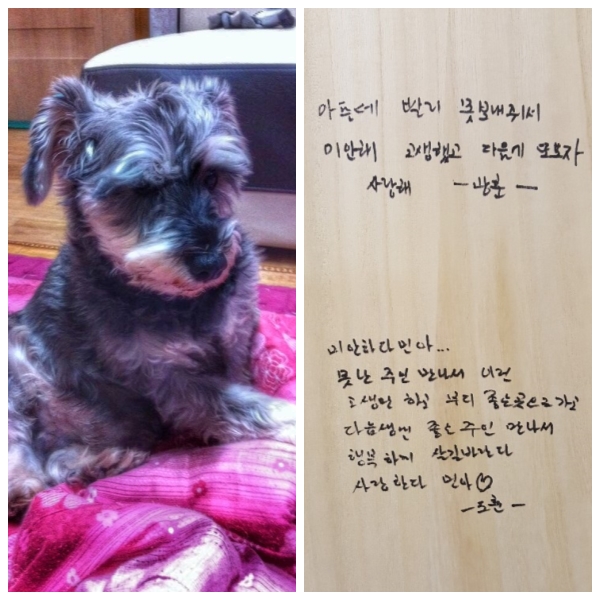 아픈데 빨리 못보내줘서
미안해 고생했고 다음에 또보자
사랑해 -광훈-
미안하다 민아...
못난 주인 만나서 이런
고생만 하고 부디 좋은곳으로 가고
다음생엔 좋은 주인 만나서
행복하게 살길바란다
사랑한다 민아♡
-도훈-